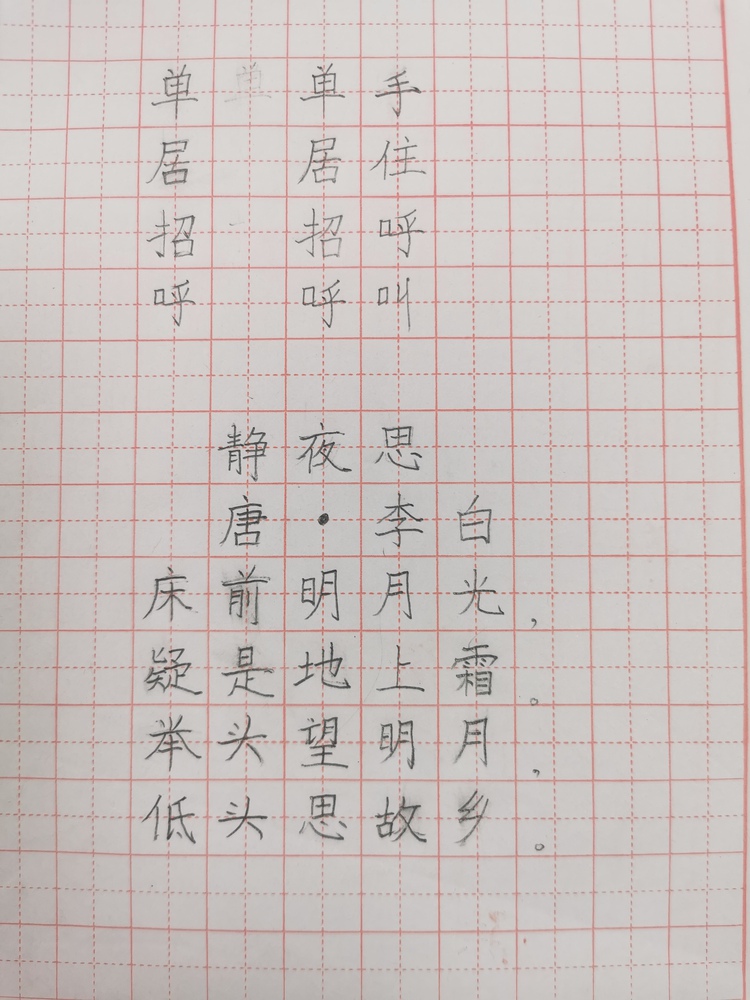 单 单 单手
居 居住
招 招呼
呼 呼叫
静夜思
唐·李白
床前明月光，
疑是地上霜。
举头望明月，
低头思故乡。